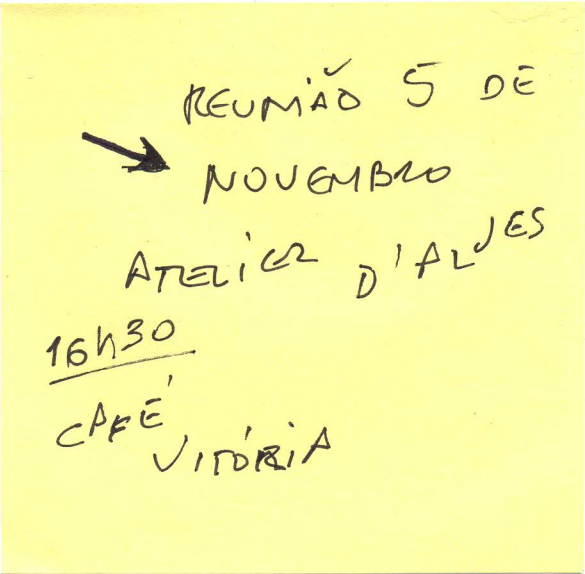 REUNIÃO 5 DE
NOVEMBRO
ATELIER D'ALVES
16h30
CAFÉ
VITÓRIA